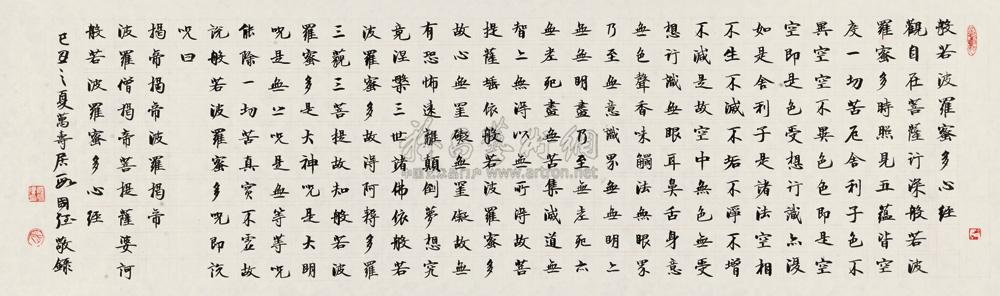 般若波羅蜜多心經
觀自在菩薩行深般若波
羅蜜多時照見五蘊皆空
度一切苦厄舍利子色不
異空空不異色色即是空
空即是色受想行識亦復
如是舍利子是諸法空相
不生不滅不垢不淨不增
不減是故空中無色無受
想行識無眼耳鼻舌身意
無色聲香味觸法無眼界
乃至無意識界無無明亦
無無明盡乃至無老死亦
無老死盡無苦集滅道無
智亦無得以無所得故菩
提薩埵依般若波羅蜜多
故心無罣礙無罣礙故無
有恐怖遠離顛倒夢想究
竟涅槃三世諸佛依般若
波羅蜜多故得阿耨多羅
三藐三菩提故知般若波
羅蜜多是大神咒是大明
咒是無上咒是無等等咒
能除一切苦真實不虛故
說般若波羅蜜多咒即說
咒曰
揭帝揭帝波羅揭帝
波羅僧揭帝菩提薩婆訶
般若波羅蜜多心經
己丑之夏萬壽居敬錄
雅昌艺术网
www.artron.net